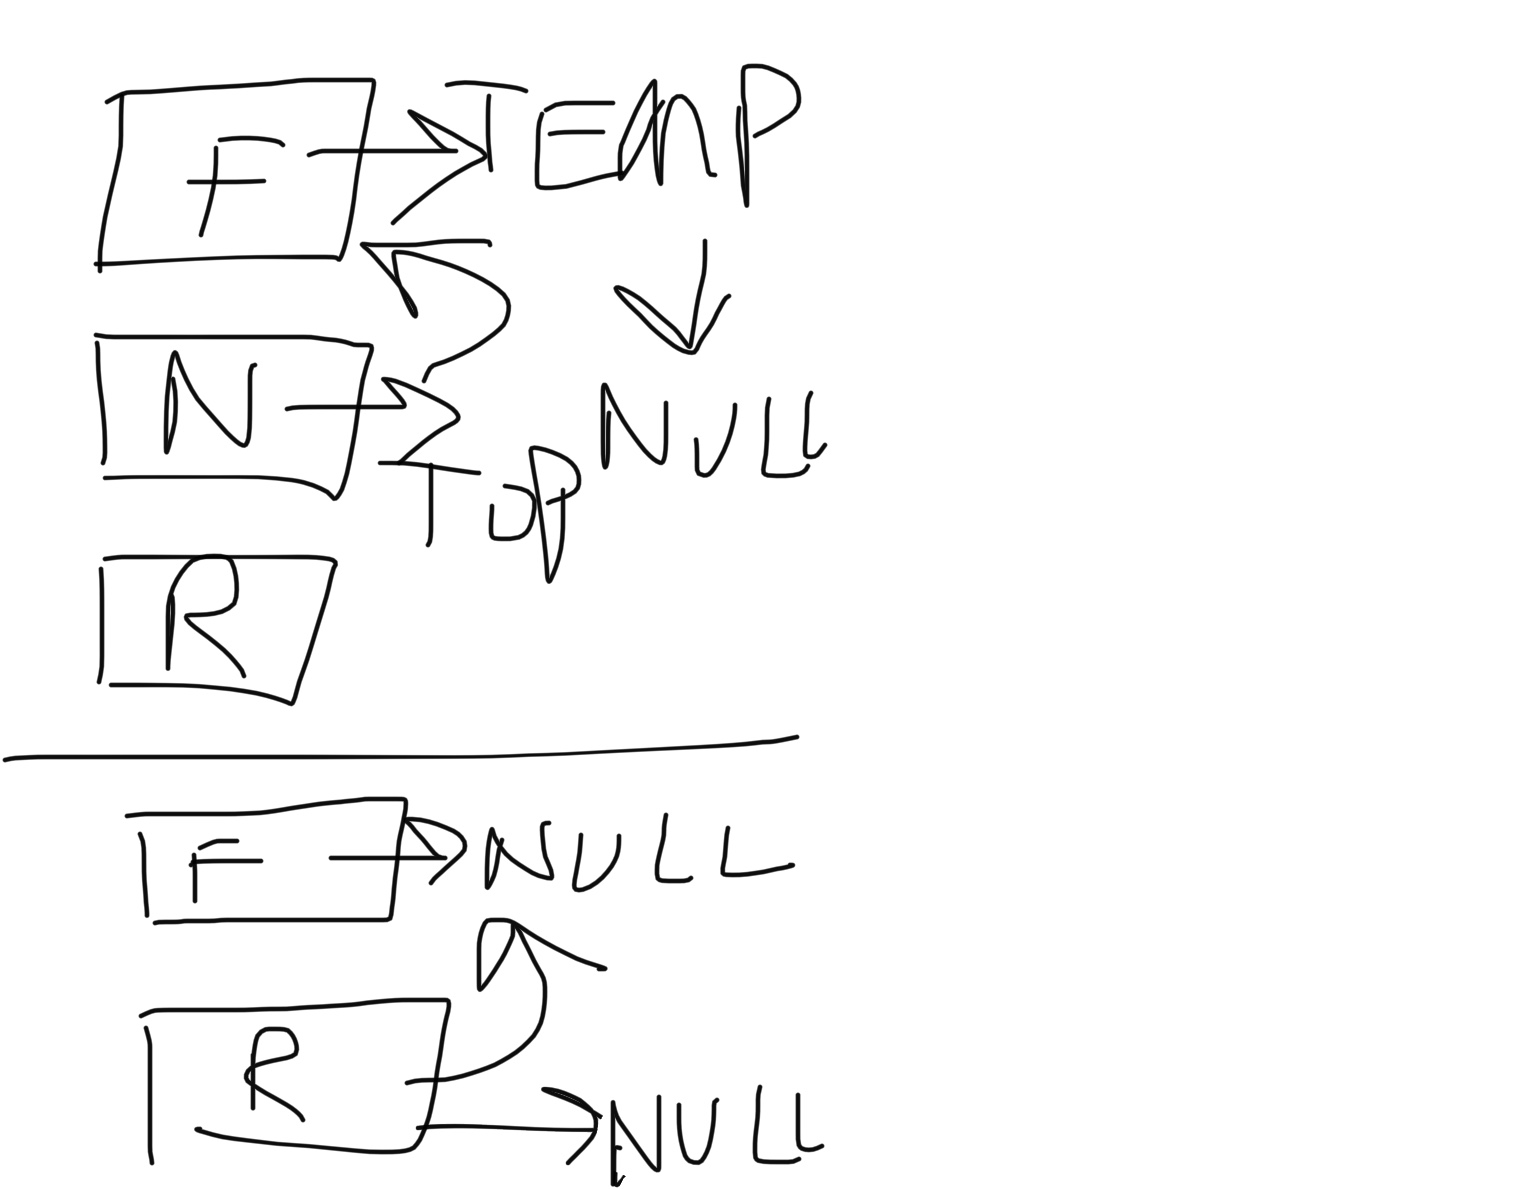 F TEMP
N NULL
TOP
R
F NULL
R
NULL